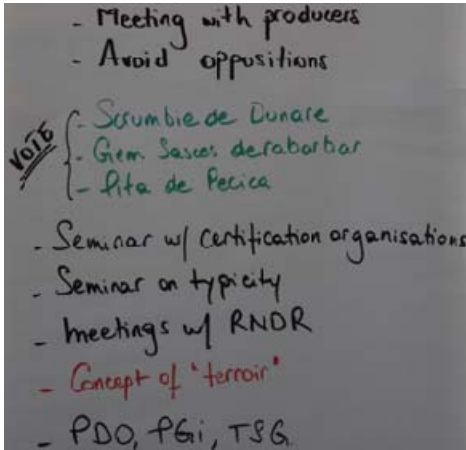 - Meeting with producers
- Avoid oppositions
VOTE
- Scrumbie de Dunare
- Gem Sascos de rabarbar
- Pita de Pecica
- Seminar w/ certification organisations
- Seminar on typicity
- meetings w/ RNDR
- Concept of "terroir"
- PDO, PGi, TSG